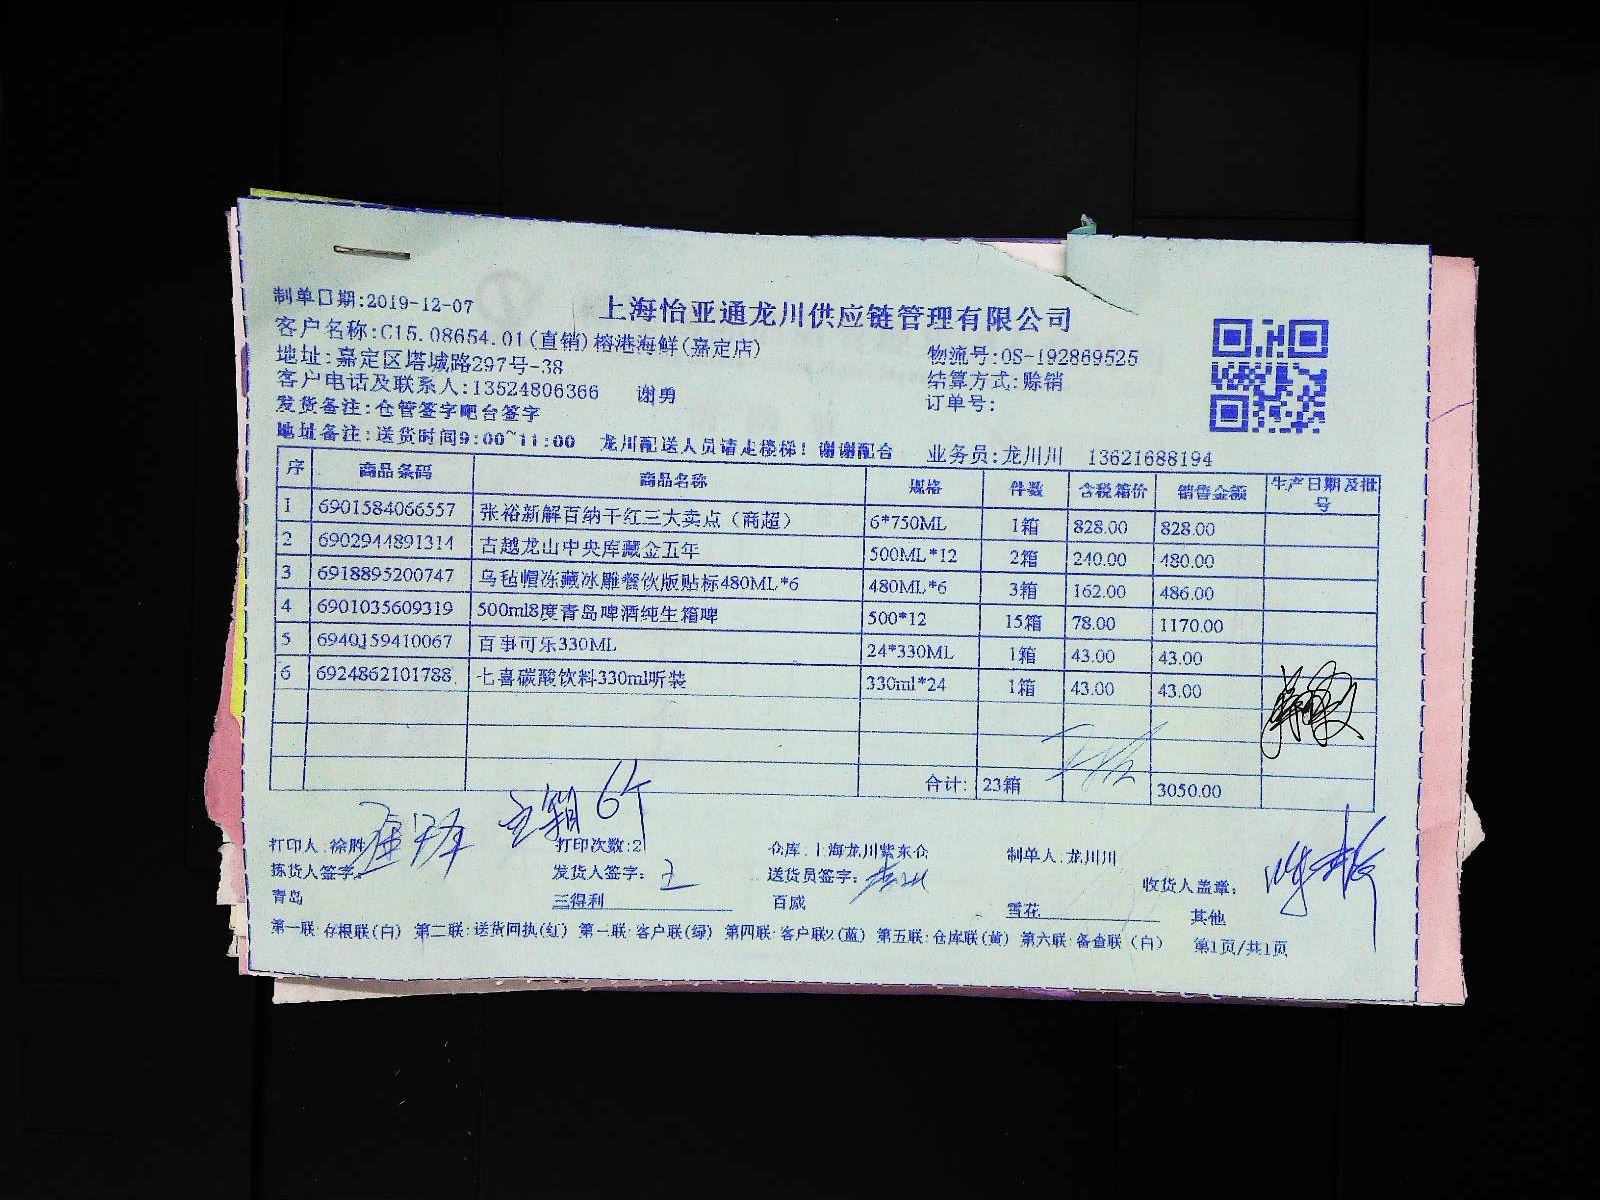 上海怡亚通龙川供应链管理有限公司
制单日期:2019-12-07
客户名称:C15.08654.01(直销)榕港海鲜(嘉定店)
物流号:OS-192869525
地址:嘉定区塔城路297号-38
结算方式:赊销
客户电话及联系人:13524806366 谢勇
订单号:
发货备注:仓管签字吧台签字
地址备注:送货时间9:00~11:00 龙川配送人员请走楼梯!谢谢配合 业务员:龙川川 13621688194
序 商品条码 商品名称 规格 件数 含税箱价 销售金额 生产日期及批号
1 6901584066557 张裕新解百纳干红三大卖点(商超) 6*750ML 1箱 828.00 828.00
2 6902944891314 古越龙山中央库藏金五年 500ML*12 2箱 240.00 480.00
3 6918895200747 乌毡帽冻藏冰雕餐饮版贴标480ML*6 480ML*6 3箱 162.00 486.00
4 6901035609319 500ml8度青岛啤酒纯生箱啤 500*12 15箱 78.00 1170.00
5 6940159410067 百事可乐330ML 24*330ML 1箱 43.00 43.00
6 6924862101788 七喜碳酸饮料330ml听装 330ml*24 1箱 43.00 43.00
合计: 23箱 3050.00
箱6个
打印人:徐胜 打印次数:2 仓库:上海龙川紫东仓 制单人:龙川川
拣货人签字: 发货人签字: 王 送货员签字: 收货人盖章:
青岛 三得利 百威 雪花 其他
第一联:存根联(白) 第二联:送货回执(红) 第一联:客户联(绿) 第四联:客户联2(蓝) 第五联:仓库联(黄) 第六联:备查联(白) 第1页/共1页